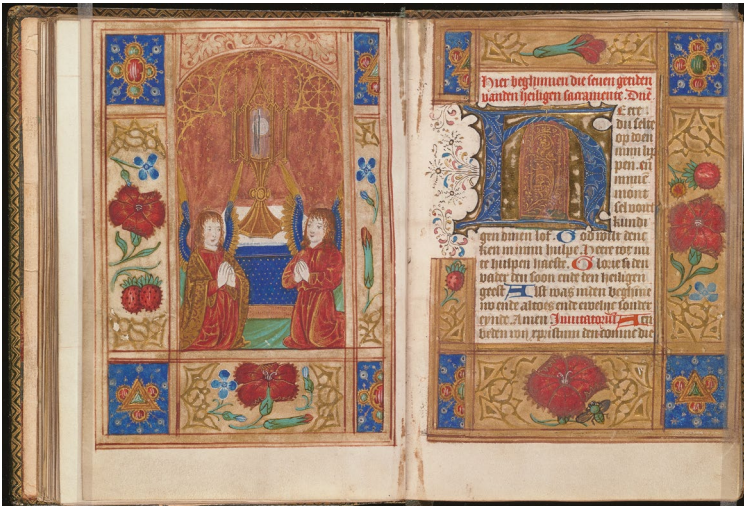 Hier beghinnen die seuen getiden
vanden heiligen sacramente. Dne
HEere
du selte
op doen
mini lip
pen. en
mijne
mont
sel vont
kundi
gen dinen lof. God wilt denc
ken in mijnn hulpe Heere tot mi
te hulpen haeste. Glorie si den
vader den soon ende den heiligen
geest Alst was inden beghinne
nv ende altoes ende ewelijc sonder
eynde. Amen Inuitatoriu Aen
beden wy xpristum den comme die